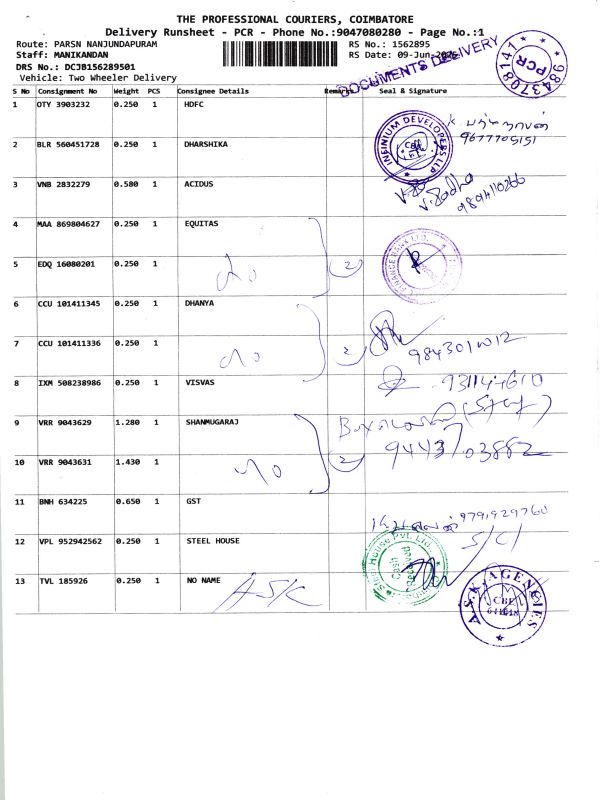 THE PROFESSIONAL COURIERS, COIMBATORE
Delivery Runsheet - PCR - Phone No.:9047080280 - Page No.:1
Route: PARSN NANJUNDAPURAM RS No.: 1562895
Staff: MANIKANDAN RS Date: 09-Jun-2026
DRS No.: DCJB156289501
Vehicle: Two Wheeler Delivery
DOCUMENTS DELIVERY
9843708141
PCR
S No Consignment No Weight PCS Consignee Details Remarks Seal & Signature
1 OTY 3903232 0.250 1 HDFC
9677705151
INFINIUM DEVELOPERS LLP
2 BLR 560451728 0.250 1 DHARSHIKA
3 VNB 2832279 0.580 1 ACIDUS
4 MAA 869804627 0.250 1 EQUITAS
5 EDQ 16080201 0.250 1
2
6 CCU 101411345 0.250 1 DHANYA
7 CCU 101411336 0.250 1
2
8 IXM 508238986 0.250 1 VISVAS
9 VRR 9043629 1.280 1 SHANMUGARAJ
9443703882
10 VRR 9043631 1.430 1
2
11 BNH 634225 0.650 1 GST
9791929760
12 VPL 952942562 0.250 1 STEEL HOUSE
Steel House Pvt. Ltd.
13 TVL 185926 0.250 1 NO NAME
A.S.K
A.S.K. AGENCIES
CBE